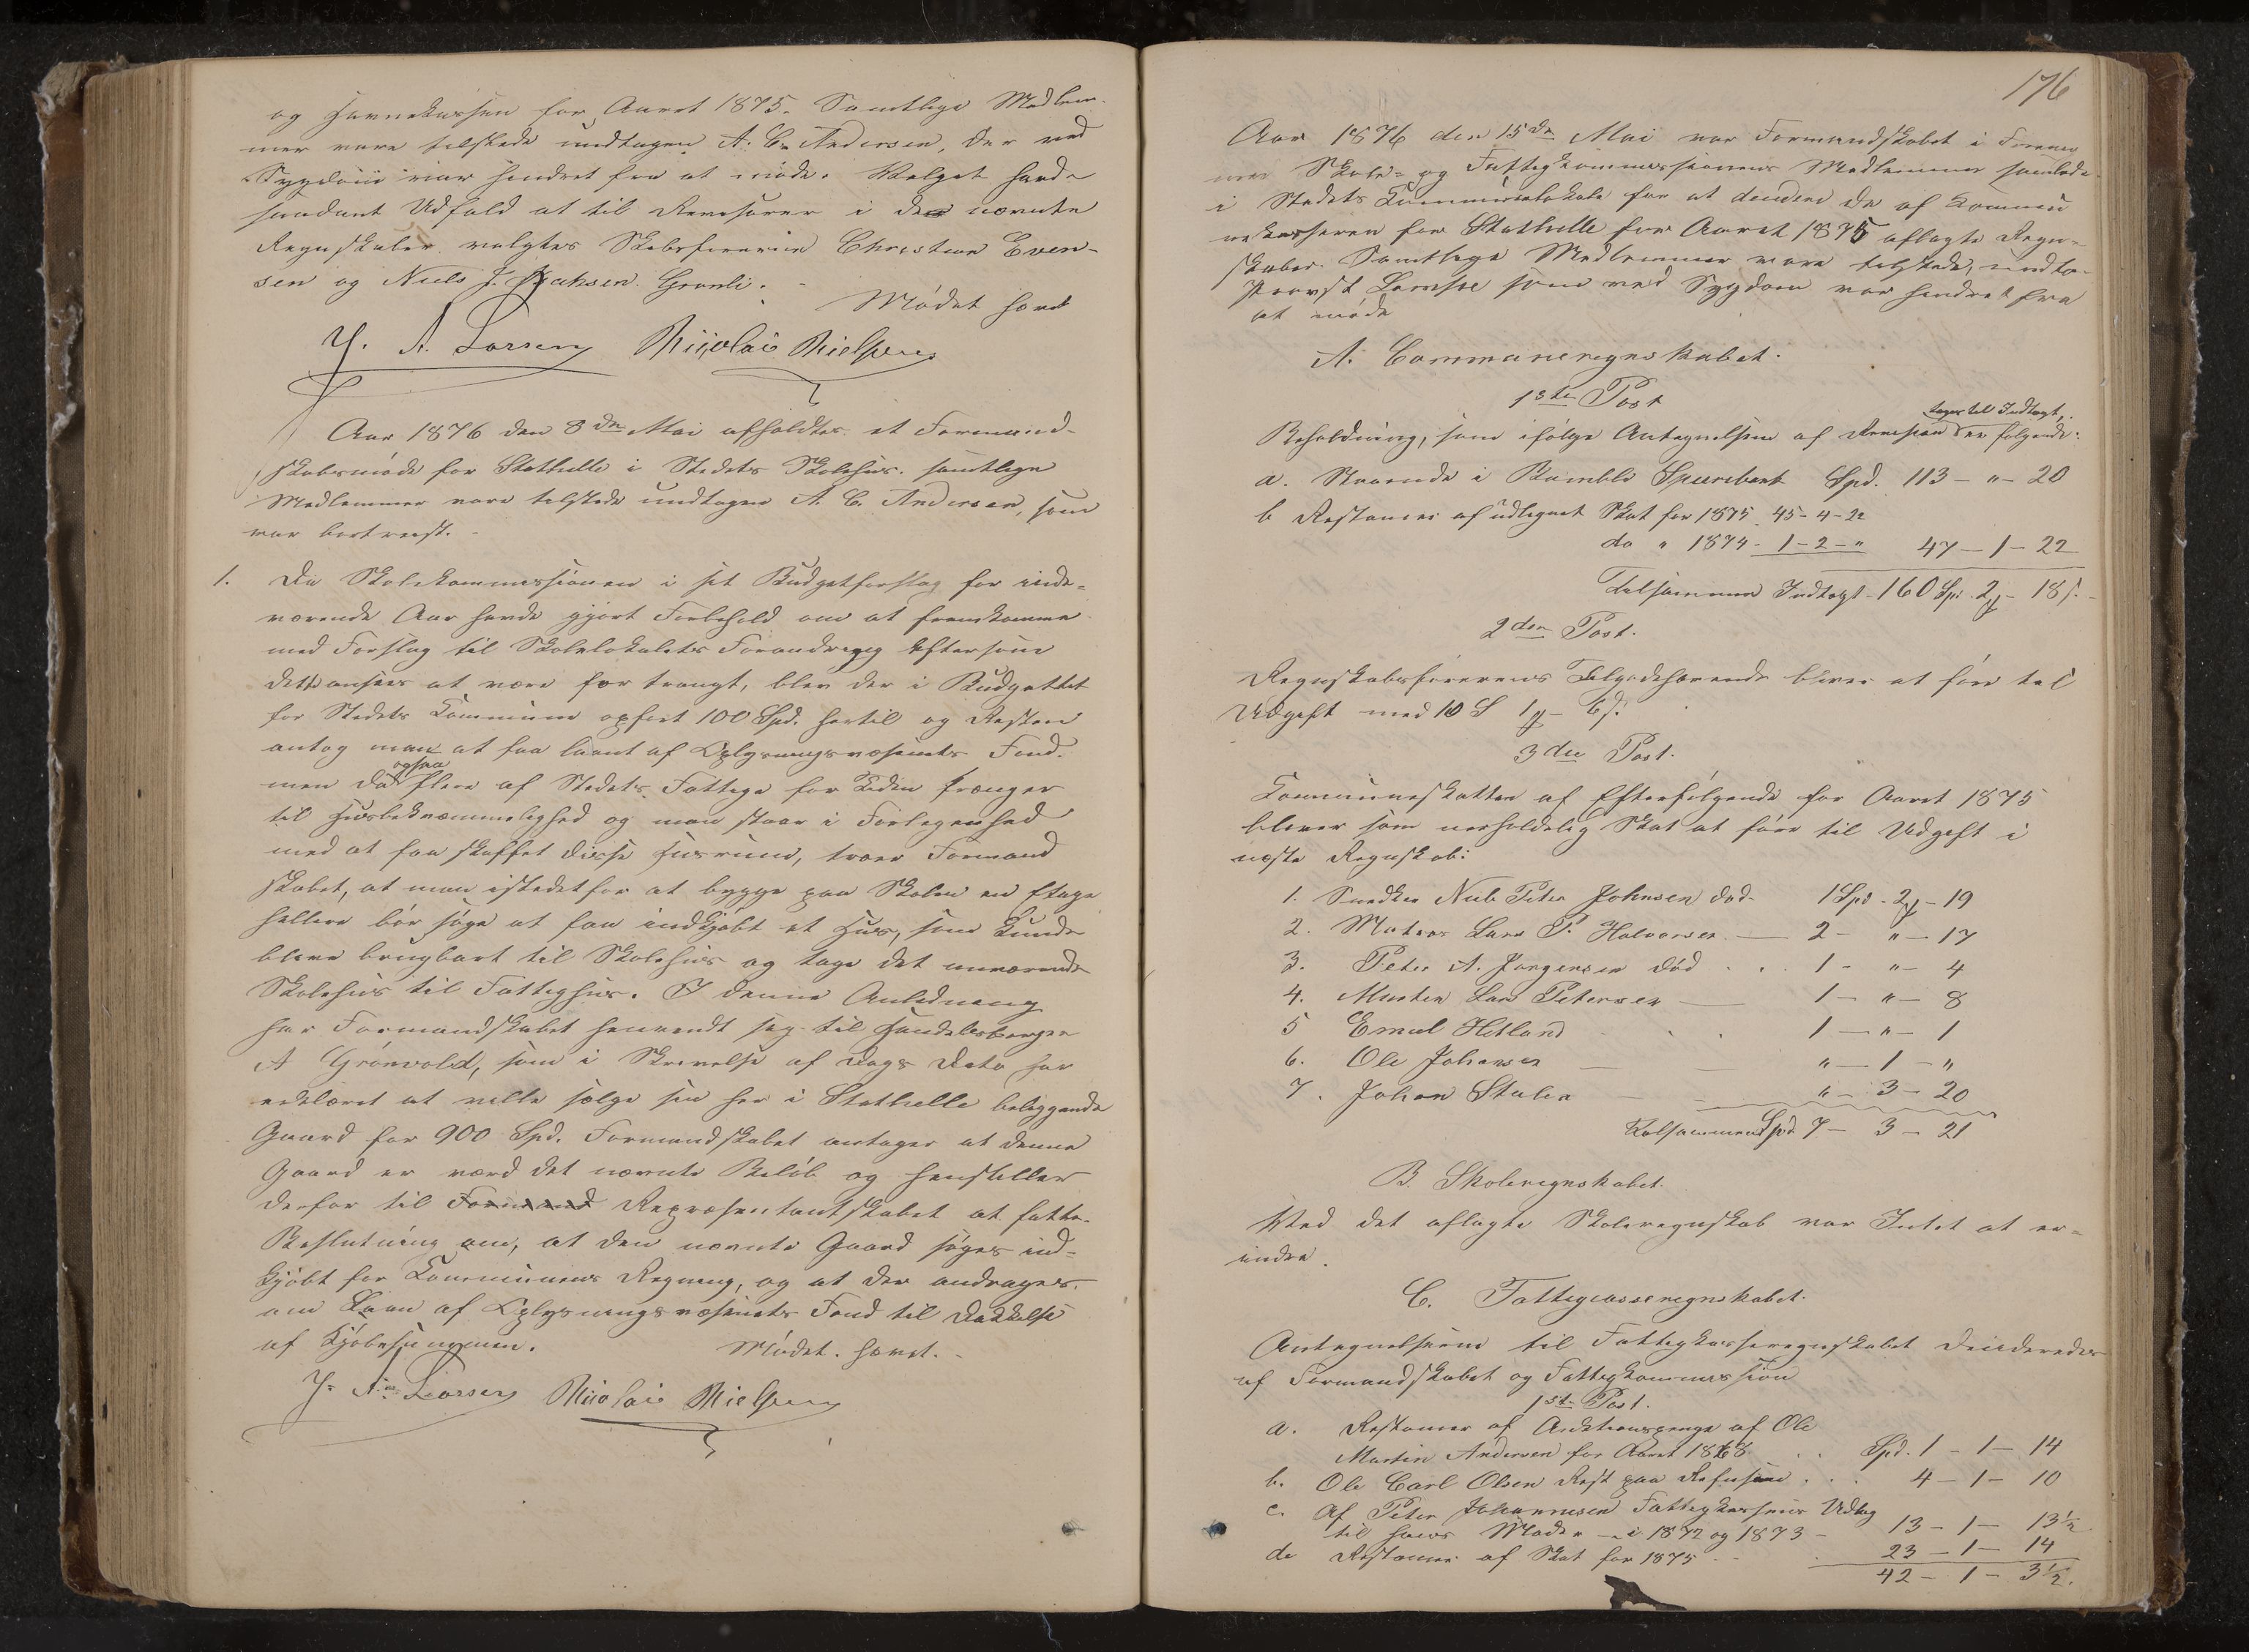 og Havnekassen for Aaret 1875. Samtlige Medlem-
mer vare tilstede undtagen A. C. Andersen, der ved
Sygdom var hindret fra at møde. Valget havde
saadant Udfald at til Revisorer i de nævnte
Regnskaber valgtes Skibsfører Christian Even-
sen og Niels J. Isaksen Gronli.
Mødet hævet
Y. A. Larsen Nicolai Nielsen
Aar 1876 den 8de Mai afholdtes et Formand-
skabsmøde for Stathelle i Stedets Skolehus. Samtlige
Medlemmer vare tilstede undtagen A. C. Andersen, som
var bortreist.
1. Da Skolekommissionen i sit Budgetforslag for inde-
værende Aar havde gjort Forbehold om at fremkomme
med Forslag til Skolelokalets Forandring eftersom
dette ansees at være for trangt, blev der i Budgettet
for Stedets Kommune opført 100 Spd. hertil og Resten
antog man at faa laant af Oplysningsvæsenets Fond.
men da også flere af Stedets Fattige for Tiden trænger
til Husbekvæmmelighed og man staar i Forlegenhed
med at faa skaffet disse Husrum, troer Formand
skabet, at man istedetfor at bygge paa Skolen en Etage
hellere bør søge at faa indkjøbt et Hus, som kunde
blive brugbart til Skolehus og tage det nuværende
Skolehus til Fattighus. I denne Anledning
har Formandskabet henvendt sig til Handelsborger
A Grønvold, som i Skrivelse af Dags Dato har
erklæret at ville sælge sin her i Stathelle beliggende
Gaard for 900 Spd. Formandskabet antager at denne
Gaard er værd det nævnte Beløb og henstiller
derfor til Formand Repræsentantskabet at fatte
Beslutning om, at den nævnte Gaard søges ind-
kjøbt for Kommunens Regning, og at der andrages
om Laan af Oplysningsvæsenets Fond til Dækkelse
af Kjøbesummen. Mødet hævet.
Y. A. Larsen Nicolai Nielsen
176
Aar 1876 den 15de Mai var Formandskabet i Forening
med Skole- og Fattigkommissionens Medlemmer samlede
i Stedets Kommunelokale for at decidere de af Kommu
nekasseren for Stathelle for Aaret 1875 aflagte Regn-
skaber. Samtlige Medlemmer vare tilstede, undta-
Provst som ved Sygdom var hindret fra
at møde
A. Communeregnskabet.
1ste Post
Beholdning, som ifølge Antegnelserne af Revision tages til Indtægt, er følgende:
a. Staaende i Bamble Sparebank Spd. 113 - " - 20
b Restancer af udlignet Skat for 1875 45 - 4 - 22
do " 1874 - 1 - 2 - " 47 - 1 - 22
Tilsammen Indtægt - 160 Sp. 2 - 18 s.
2den Post.
Regnskabsførerens Tilgodehavende bliver at føre til
Udgift med 10 S 1 - 6 s.
3die Post.
Kommuneskatten af Efterfølgende for Aaret 1875
bliver som uerholdelig Skat at føre til Udgift i
næste Regnskab:
1. Snedker Niels Peter Johnsen død - 1 Spd - 2 - 19
2. Matros Lars P. Halvorsen - 2 - " - 17
3. Peter A. Jørgensen død . . 1 - " - 4
4. Lars Petersen - 1 - " - 8
5 Emil Hetland . . . 1 - " - 1
6. Ole Johansen - - " - 1 - "
7. Johan Stulen - - " - 3 - 20
Tilsammen Spd 7 - 3 - 21
B. Skoleregnskabet.
Ved det aflagte Skoleregnskab var Intet at er-
indre.
C. Fattigcasseregnskabet.
Antegnelserne til Fattigkasseregnskabet decideredes
af Formandskabet og Fattigkommission
1ste Post.
a. Restancer af Auktionspenge af Ole
Martin Andersen for Aaret 1868 . . Spd. 1 - 1 - 14
b. Ole Carl Olsen Rest paa Refusion . . 4 - 1 - 10
c. Af Peter Johannesen Fattigkassens Udlæg
til hans Moder - i 1872 og 1873 - 13 - 1 - 13 1/2
d Restancer af Skat for 1875 . . 23 - 1 - 14
42 - 1 - 3 1/2.